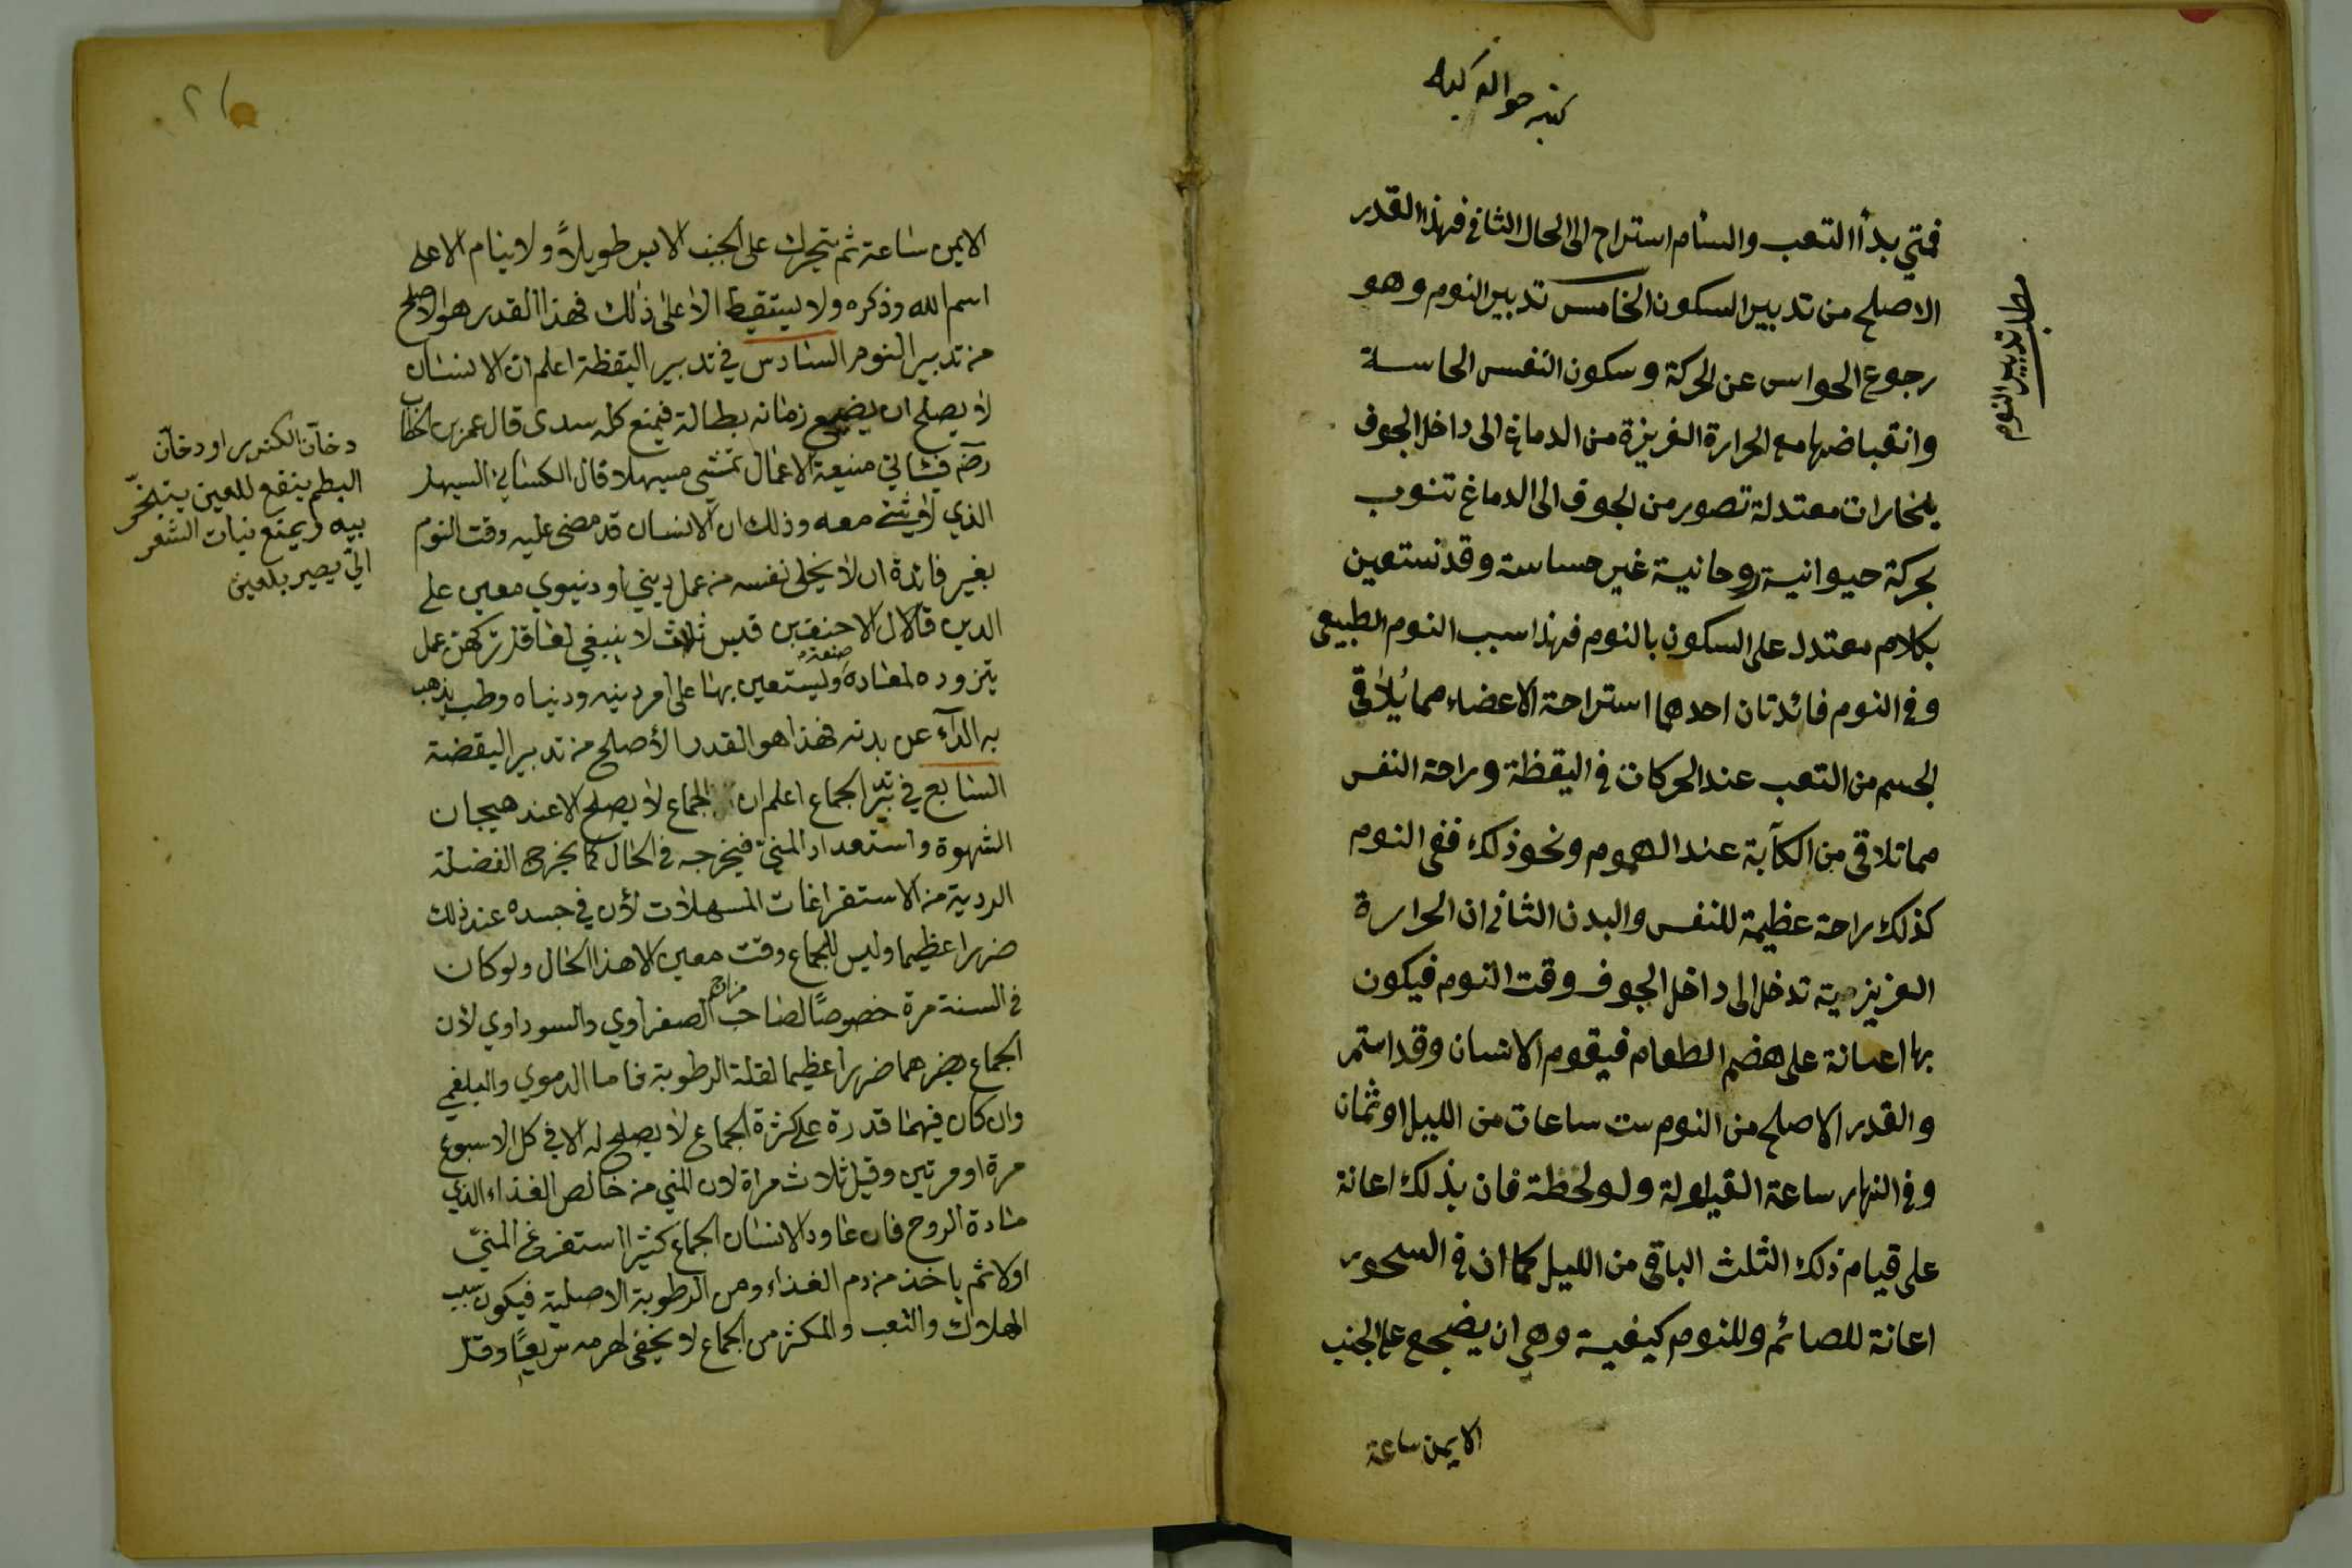 فمتي بدأ التعب والسأم استراح الى الحال الثاني فهذا القدر
الاصلح من تدبير السكون الخامس تدبير النوم وهو
رجوع الحواس عن الحركة وسكون النفس الحاسة
وانقباضها مع الحرارة الغريزة من الدماغ الى داخل الجوف
بخارات معتدلة تصور من الجوف الى الدماغ تنوب
بحركة حيوانية روحانية غير حساسة وقد نستعين
بكلام معتدل على السكون بالنوم فهذا سبب النوم الطبيعي
وفي النوم فائدتان احدهما استراحة الاعضاء مما يلاقى
الجسم من التعب عند الحركات في اليقظة وراحة النفس
مما تلاقى من الكآبة عند الهموم ونحو ذلك ففى النوم
كذلك راحة عظيمة للنفس والبدن الثاني ان الحرارة
العزيزية تدخل الى داخل الجوف وقت النوم فيكون
بها اعانة على هضم الطعام فيقوم الانسان وقد استمر
والقدر الاصلح من النوم ست ساعات من الليل او ثمان
وفي النهار ساعة القيلولة ولو لحظة فان بذلك اعانة
على قيام ذلك الثلث الباقي من الليل كما ان في السحور
اعانة للصائم وللنوم كيفية وهي ان يضجع على الجنب
الايمن ساعة
تدبير النوم
الايمن ساعة ثم يتحرك على الجنب الايسر طويلاً ولا ينام الا على
اسم الله وذكره ولا يستيقظ الا على ذلك فهذا القدر هو الاصلح
من تدبير النوم السادس في تدبير اليقظة اعلم ان الانسان
لا يصلح ان يضيع زمانه بطالة فيمنع كله سدى قال عمر بن الخطاب
الذي لا شئ معه وذلك ان الانسان قد مضى عليه وقت النوم
بغير فائدة ان لا يخلى نفسه من عمل ديني او دنيوي معين على
الدين قال الاحنف بن قيس ثلاث لا ينبغي لعاقل تركهن عمل
يتزوده لمعاده وصنعة يستعين بها على امر دينه ودنياه وطب يذهب
به الدآء عن بدنه فهذا هو القدر الأصلح من تدبير اليقضة
السابع في تدبير الجماع اعلم ان الجماع لا يصلح الا عند هيجان
الشهوة واستعداد المني فيخرجه في الحال كما يخرج الفضلة
الردية من الاستفراغات المسهلات لأن في جسده عند ذلك
ضررا عظيما وليس للجماع وقت معين الا هذا الحال ولو كان
في السنة مرة خصوصًا لصاحب مزاج الصفراوي والسوداوي لأن
الجماع يضرهما ضررا عظيما لقلة الرطوبة فاما الدموي والبلغمي
وان كان فيهما قدرة على كثرة الجماع لا يصلح له الا في كل الاسبوع
مرة او مرتين وقيل ثلاث مراة لان المني من خالص الغذاء الذي
مادة الروح فان عاود الانسان الجماع كثيرا استفرغ المنيّ
اولا ثم ياخذ من دم الغذاء ومن الرطوبة الاصلية فيكون سبب
الهلاك والتعب والمكثر من الجماع لا يخفى لهرمه سريعًا وقل
دخآن الكندر او دخآن
البطم ينفع للعين يتبخّر
بيه ويمنع نبات الشعر
الي يصير بلعين